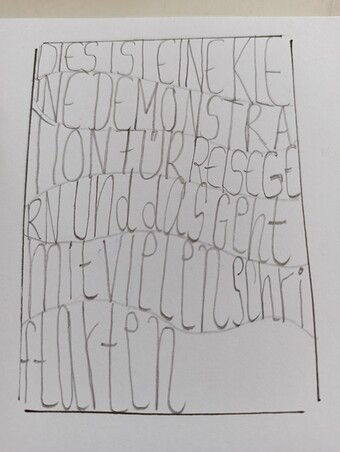 DIES IST EINE KLE
INE DEMONSTRA
TION FÜR REISEGE
RN UNd dAS GEht
mit VIELEN schri
ftarten